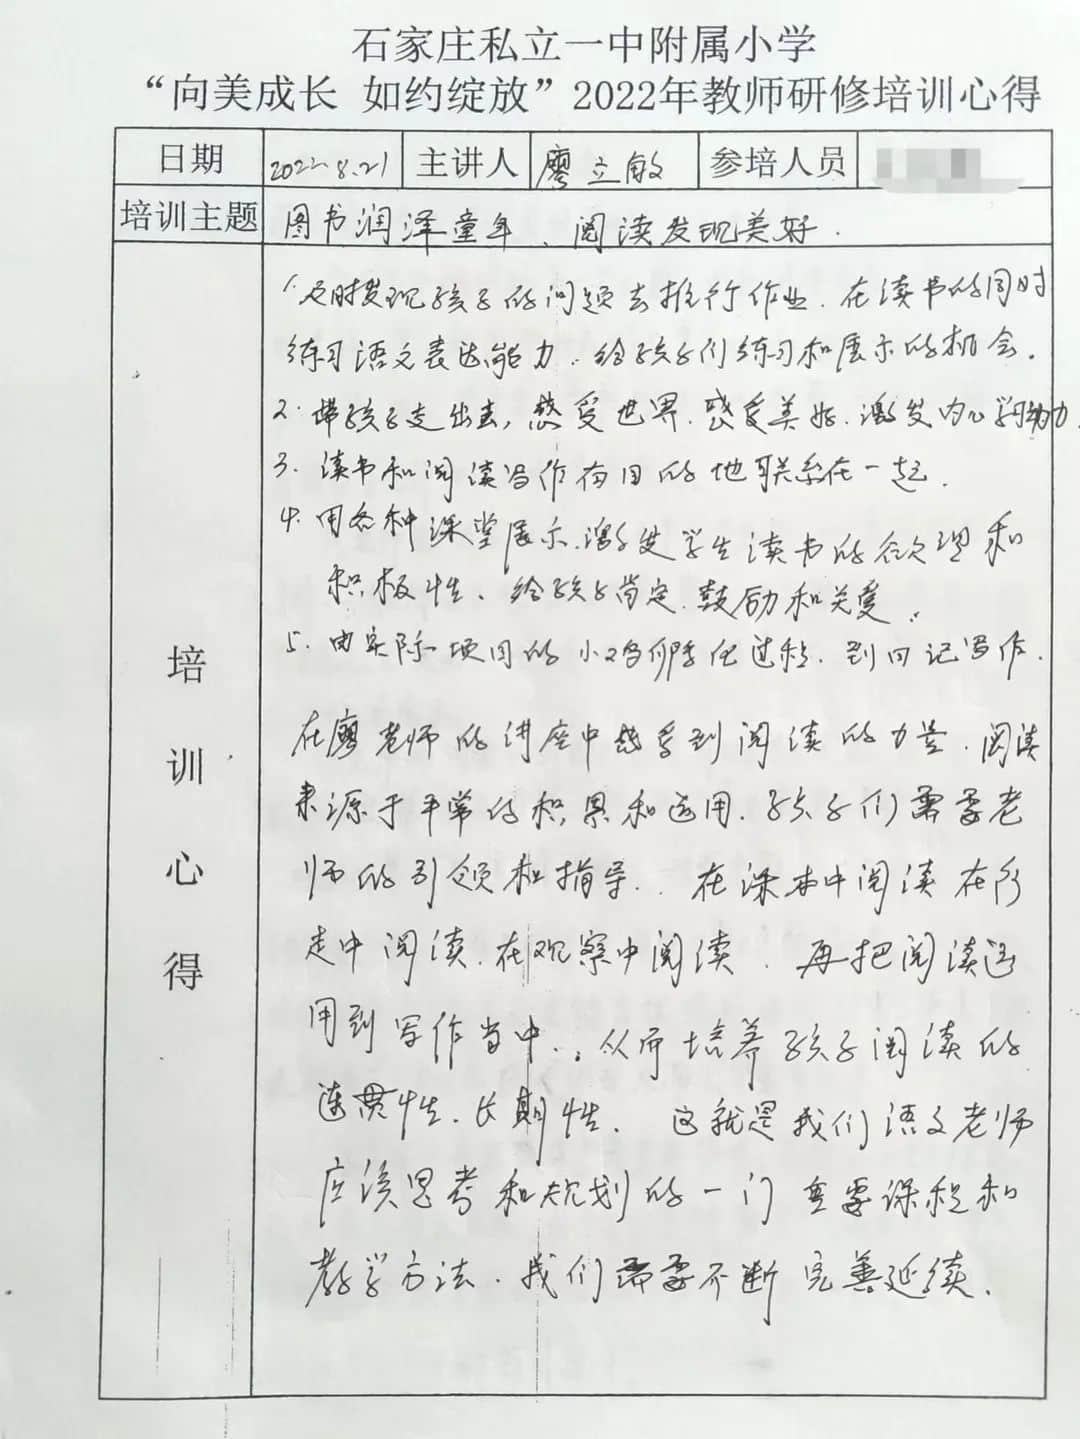 石家庄私立一中附属小学
“向美成长 如约绽放”2022年教师研修培训心得
日期 2022.8.21 主讲人 廖立敏 参培人员
培训主题 图书润泽童年、阅读发现美好.
培训心得
1.及时发现孩子的问题去推行作业.在读书的同时
练习语文表达能力.给孩子们练习和展示的机会.
2.带孩子走出去,感受世界.感受美好.激发内心学习动力.
3.读书和阅读写作有目的地联系在一起.
4.用各种课堂展示.激发学生读书的欲望和
积极性、给孩子肯定.鼓励和关爱.
5.由实际项目的小鸡孵化过程.到日记写作.
在廖老师的讲座中感受到阅读的力量.阅读
来源于平常的积累和运用.孩子们需要老
师的引领和指导.在课本中阅读在行
走中阅读.在观察中阅读.再把阅读运
用到写作当中.从而培养孩子阅读的
连贯性.长期性.这就是我们语文老师
应该思考和规划的一门重要课程和
教学方法.我们需要不断完善延续.